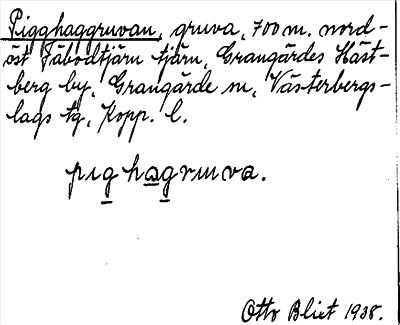 Pigghaggruvan, gruva, 700 m. nord-
öst Fäbodtjärn tjärn, Grangärdes Häst-
berg by, Grangärde sn, Västerbergs-
lags tg, Kopp. l.
pɩghagruva.
Otto Blixt 1938.